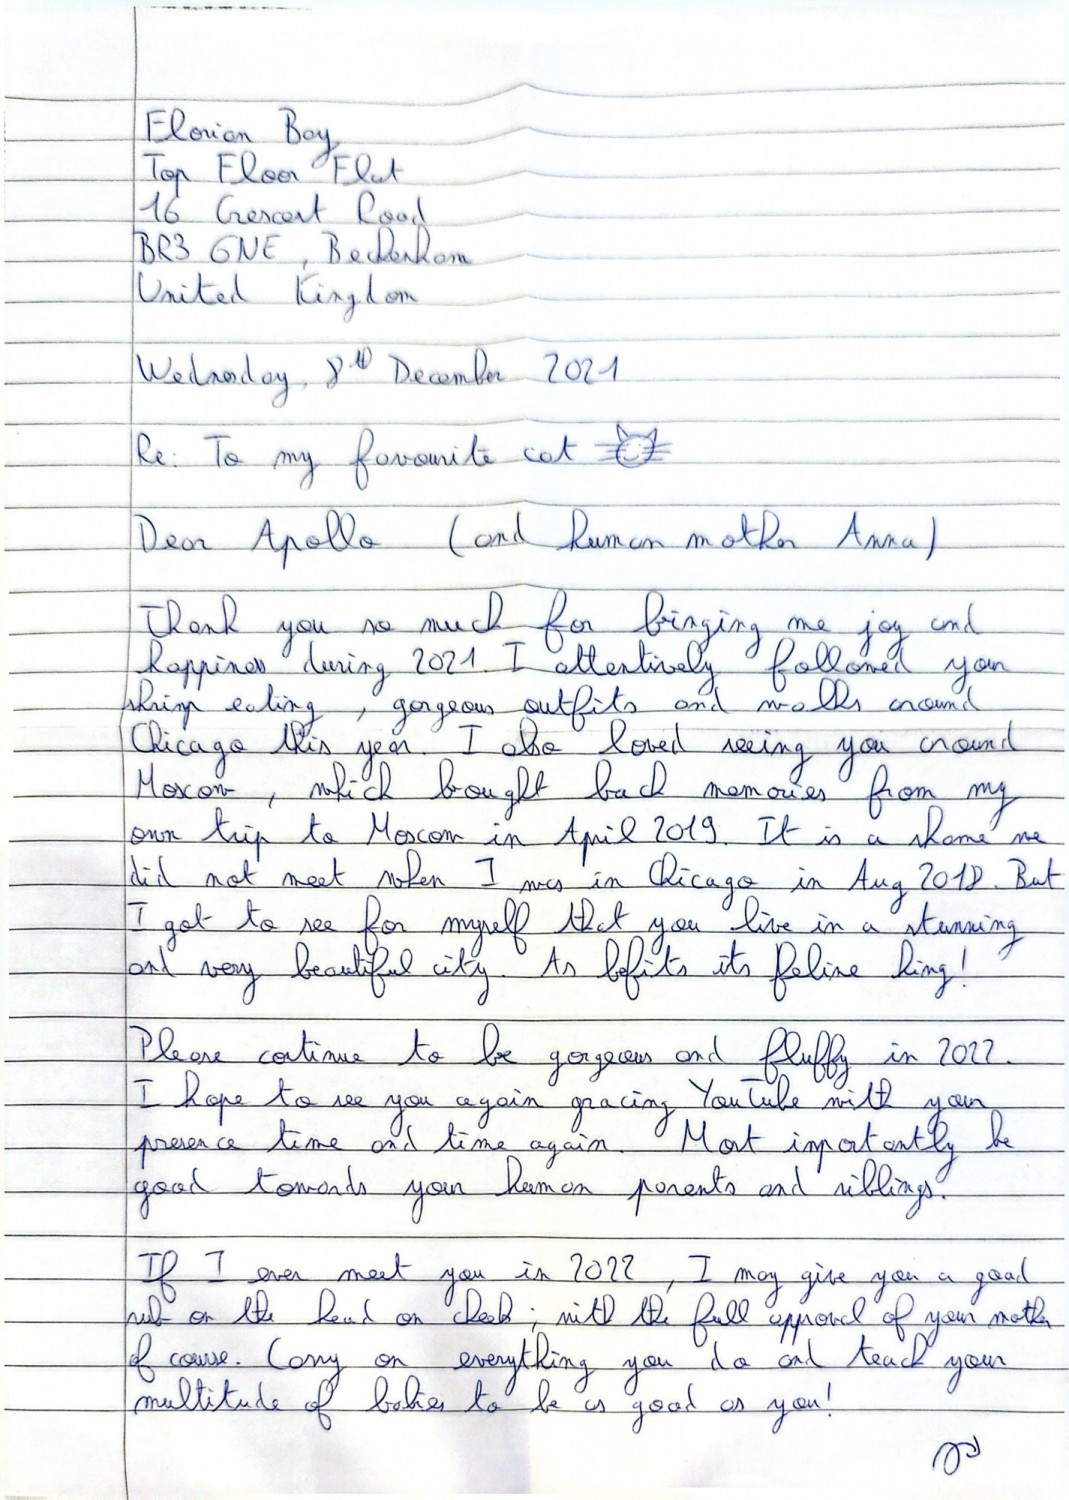 Florian Bay
Top Floor Flat
16 Crescent Road
BR3 6NE, Beckenham
United Kingdom
Wednesday, 8th December 2021
Re: To my favourite cat
Dear Apollo (and human mother Anna)
Thank you so much for bringing me joy and
happiness during 2021. I attentively followed your
shrimp eating, gorgeous outfits and walks around
Chicago this year. I also loved seeing you around
Moscow, which bought back memories from my
own trip to Moscow in April 2019. It is a shame we
did not meet when I was in Chicago in Aug 2018. But
I got to see for myself that you live in a stunning
and very beautiful city. As befits its feline king!
Please continue to be gorgeous and fluffy in 2022.
I hope to see you again gracing YouTube with your
presence time and time again. Most importantly be
good towards your human parents and siblings.
If I ever meet you in 2022, I may give you a good
rub on the head or cheek; with the full approval of your mother
of course. Carry on everything you do and teach your
multitude of babies to be as good as you!